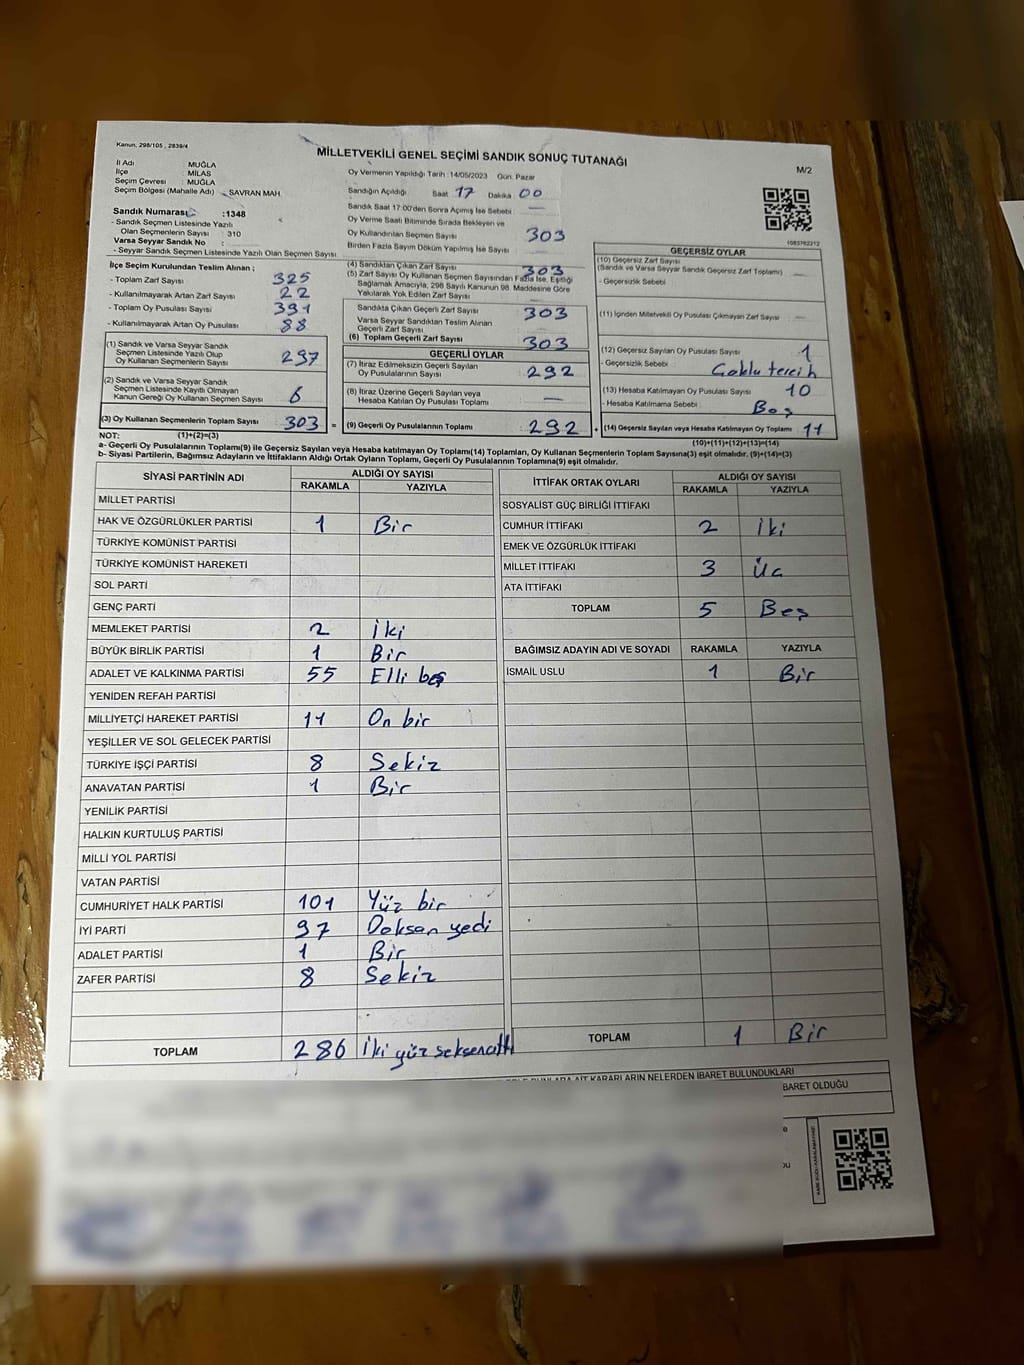 Kanun, 298/105 , 2839/4
MİLLETVEKİLİ GENEL SEÇİMİ SANDIK SONUÇ TUTANAĞI
M/2
İl Adı MUĞLA
İlçe : MİLAS
Seçim Çevresi : MUĞLA
Seçim Bölgesi (Mahalle Adı) SAVRAN MAH.
Sandık Numarası :1348
- Sandık Seçmen Listesinde Yazılı
Olan Seçmenlerin Sayısı 310
Varsa Seyyar Sandık No :
- Seyyar Sandık Seçmen Listesinde Yazılı Olan Seçmen Sayısı
Oy Vermenin Yapıldığı Tarih :14/05/2023 Gün: Pazar
Sandığın Açıldığı Saat 17 Dakika 00
Sandık Saat 17:00'den Sonra Açımış İse Sebebi : —
Oy Verme Saati Bitiminde Sırada Bekleyen ve
Oy Kullandırılan Seçmen Sayısı 303
Birden Fazla Sayım Döküm Yapılmış İse Sayısı —
1085762212
İlçe Seçim Kurulundan Teslim Alınan ;
- Toplam Zarf Sayısı 325
- Kullanılmayarak Artan Zarf Sayısı 22
- Toplam Oy Pusulası Sayısı 391
- Kullanılmayarak Artan Oy Pusulası 88
(1) Sandık ve Varsa Seyyar Sandık
Seçmen Listesinde Yazılı Olup
Oy Kullanan Seçmenlerin Sayısı 297
(2) Sandık ve Varsa Seyyar Sandık
Seçmen Listesinde Kayıtlı Olmayan
Kanun Gereği Oy Kullanan Seçmen Sayısı 6
(3) Oy Kullanan Seçmenlerin Toplam Sayısı 303 =
(4) Sandıktan Çıkan Zarf Sayısı 303
(5) Zarf Sayısı Oy Kullanan Seçmen Sayısından Fazla İse, Eşitliği
Sağlamak Amacıyla, 298 Sayılı Kanunun 98. Maddesine Göre
Yakılarak Yok Edilen Zarf Sayısı —
Sandıkta Çıkan Geçerli Zarf Sayısı 303
Varsa Seyyar Sandıktan Teslim Alınan
Geçerli Zarf Sayısı —
(6) Toplam Geçerli Zarf Sayısı 303
GEÇERLİ OYLAR
(7) İtiraz Edilmeksizin Geçerli Sayılan
Oy Pusulalarının Sayısı 292
(8) İtiraz Üzerine Geçerli Sayılan veya
Hesaba Katılan Oy Pusulası Toplamı —
(9) Geçerli Oy Pusulalarının Toplamı 292 +
GEÇERSİZ OYLAR
(10) Geçersiz Zarf Sayısı
(Sandık ve Varsa Seyyar Sandık Geçersiz Zarf Toplamı) —
- Geçersizlik Sebebi
(11) İçinden Milletvekili Oy Pusulası Çıkmayan Zarf Sayısı —
(12) Geçersiz Sayılan Oy Pusulası Sayısı 1
- Geçersizlik Sebebi Çoklu tercih
(13) Hesaba Katılmayan Oy Pusulası Sayısı 10
- Hesaba Katılmama Sebebi Boş
(14) Geçersiz Sayılan veya Hesaba Katılmayan Oy Toplamı 11
NOT: (1)+(2)=(3) (10)+(11)+(12)+(13)=(14)
a- Geçerli Oy Pusulalarının Toplamı(9) ile Geçersiz Sayılan veya Hesaba katılmayan Oy Toplamı(14) Toplamları, Oy Kullanan Seçmenlerin Toplam Sayısına(3) eşit olmalıdır. (9)+(14)=(3)
b- Siyasi Partilerin, Bağımsız Adayların ve İttifakların Aldığı Ortak Oyların Toplamı, Geçerli Oy Pusulalarının Toplamına(9) eşit olmalıdır.
SİYASİ PARTİNİN ADI ALDIĞI OY SAYISI
RAKAMLA YAZIYLA
MİLLET PARTİSİ
HAK VE ÖZGÜRLÜKLER PARTİSİ 1 Bir
TÜRKİYE KOMÜNİST PARTİSİ
TÜRKİYE KOMÜNİST HAREKETİ
SOL PARTİ
GENÇ PARTİ
MEMLEKET PARTİSİ 2 İki
BÜYÜK BİRLİK PARTİSİ 1 Bir
ADALET VE KALKINMA PARTİSİ 55 Elli beş
YENİDEN REFAH PARTİSİ
MİLLİYETÇİ HAREKET PARTİSİ 11 On bir
YEŞİLLER VE SOL GELECEK PARTİSİ
TÜRKİYE İŞÇİ PARTİSİ 8 Sekiz
ANAVATAN PARTİSİ 1 Bir
YENİLİK PARTİSİ
HALKIN KURTULUŞ PARTİSİ
MİLLİ YOL PARTİSİ
VATAN PARTİSİ
CUMHURİYET HALK PARTİSİ 101 Yüz bir
İYİ PARTİ 97 Doksan yedi
ADALET PARTİSİ 1 Bir
ZAFER PARTİSİ 8 Sekiz
TOPLAM 286 İki yüz seksenaltı
İTTİFAK ORTAK OYLARI ALDIĞI OY SAYISI
RAKAMLA YAZIYLA
SOSYALİST GÜÇ BİRLİĞİ İTTİFAKI
CUMHUR İTTİFAKI 2 İki
EMEK VE ÖZGÜRLÜK İTTİFAKI
MİLLET İTTİFAKI 3 Üç
ATA İTTİFAKI
TOPLAM 5 Beş
BAĞIMSIZ ADAYIN ADI VE SOYADI RAKAMLA YAZIYLA
İSMAİL USLU 1 Bir
TOPLAM 1 Bir
BUNLARA AİT KARARLARIN NELERDEN İBARET BULUNDUKLARI
BARET OLDUĞU